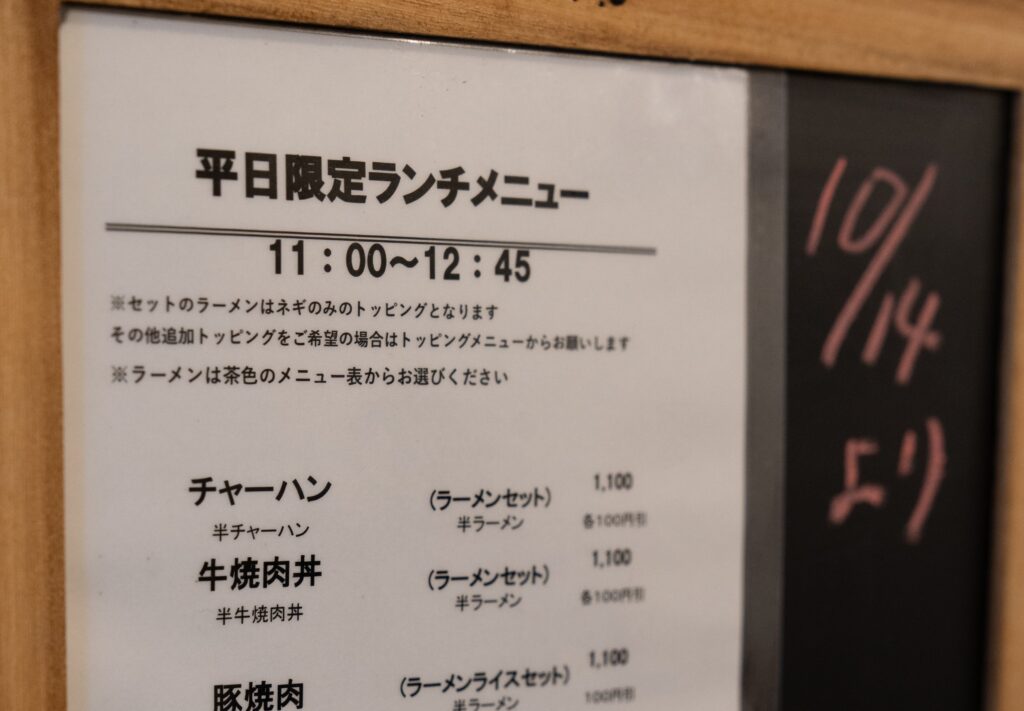 平日限定ランチメニュー
11：00～12：45
※セットのラーメンはネギのみのトッピングとなります
その他追加トッピングをご希望の場合はトッピングメニューからお願いします
※ラーメンは茶色のメニュー表からお選びください
チャーハン （ラーメンセット） 1,100
半チャーハン 半ラーメン 各100円引
牛焼肉丼 （ラーメンセット） 1,100
半牛焼肉丼 半ラーメン 各100円引
豚焼肉 （ラーメンライスセット） 1,100
半ラーメン 100円引
10/14
より